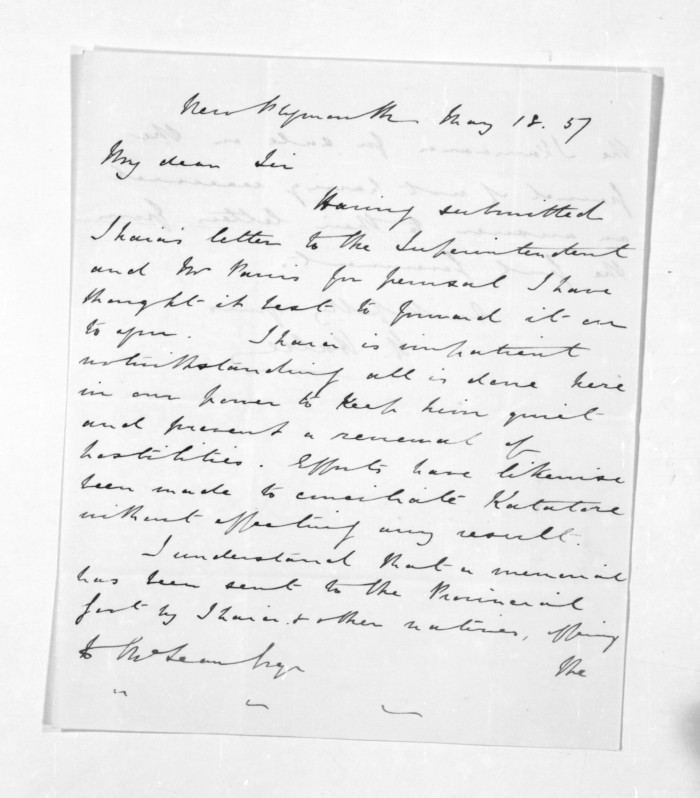 New Plymouth May 18. 57
My dear Sir
Having submitted
Ihaia's letter to the Superintendent
and Mr Parris for perusal I have
thought it best to forward it on
to you. Ihaia is impatient
notwithstanding all is done here
in our power to keep him quiet
and prevent a renewal of
hostilities. Efforts have likewise
been made to conciliate Katatore
without effecting any result.
I understand that a memorial
has been sent to the Provincial
Govt by Ihaia & other natives, offering
D McLean Esqr the
" " "